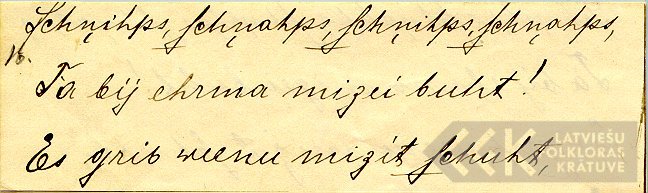 Schņihps, schņahps, schņihps, schņahps,
18.
Ta bij ehrma mizei buht!
Es grib weenu mizit schuht,
LATVIEŠU
FOLKLORAS
KRĀTUVE